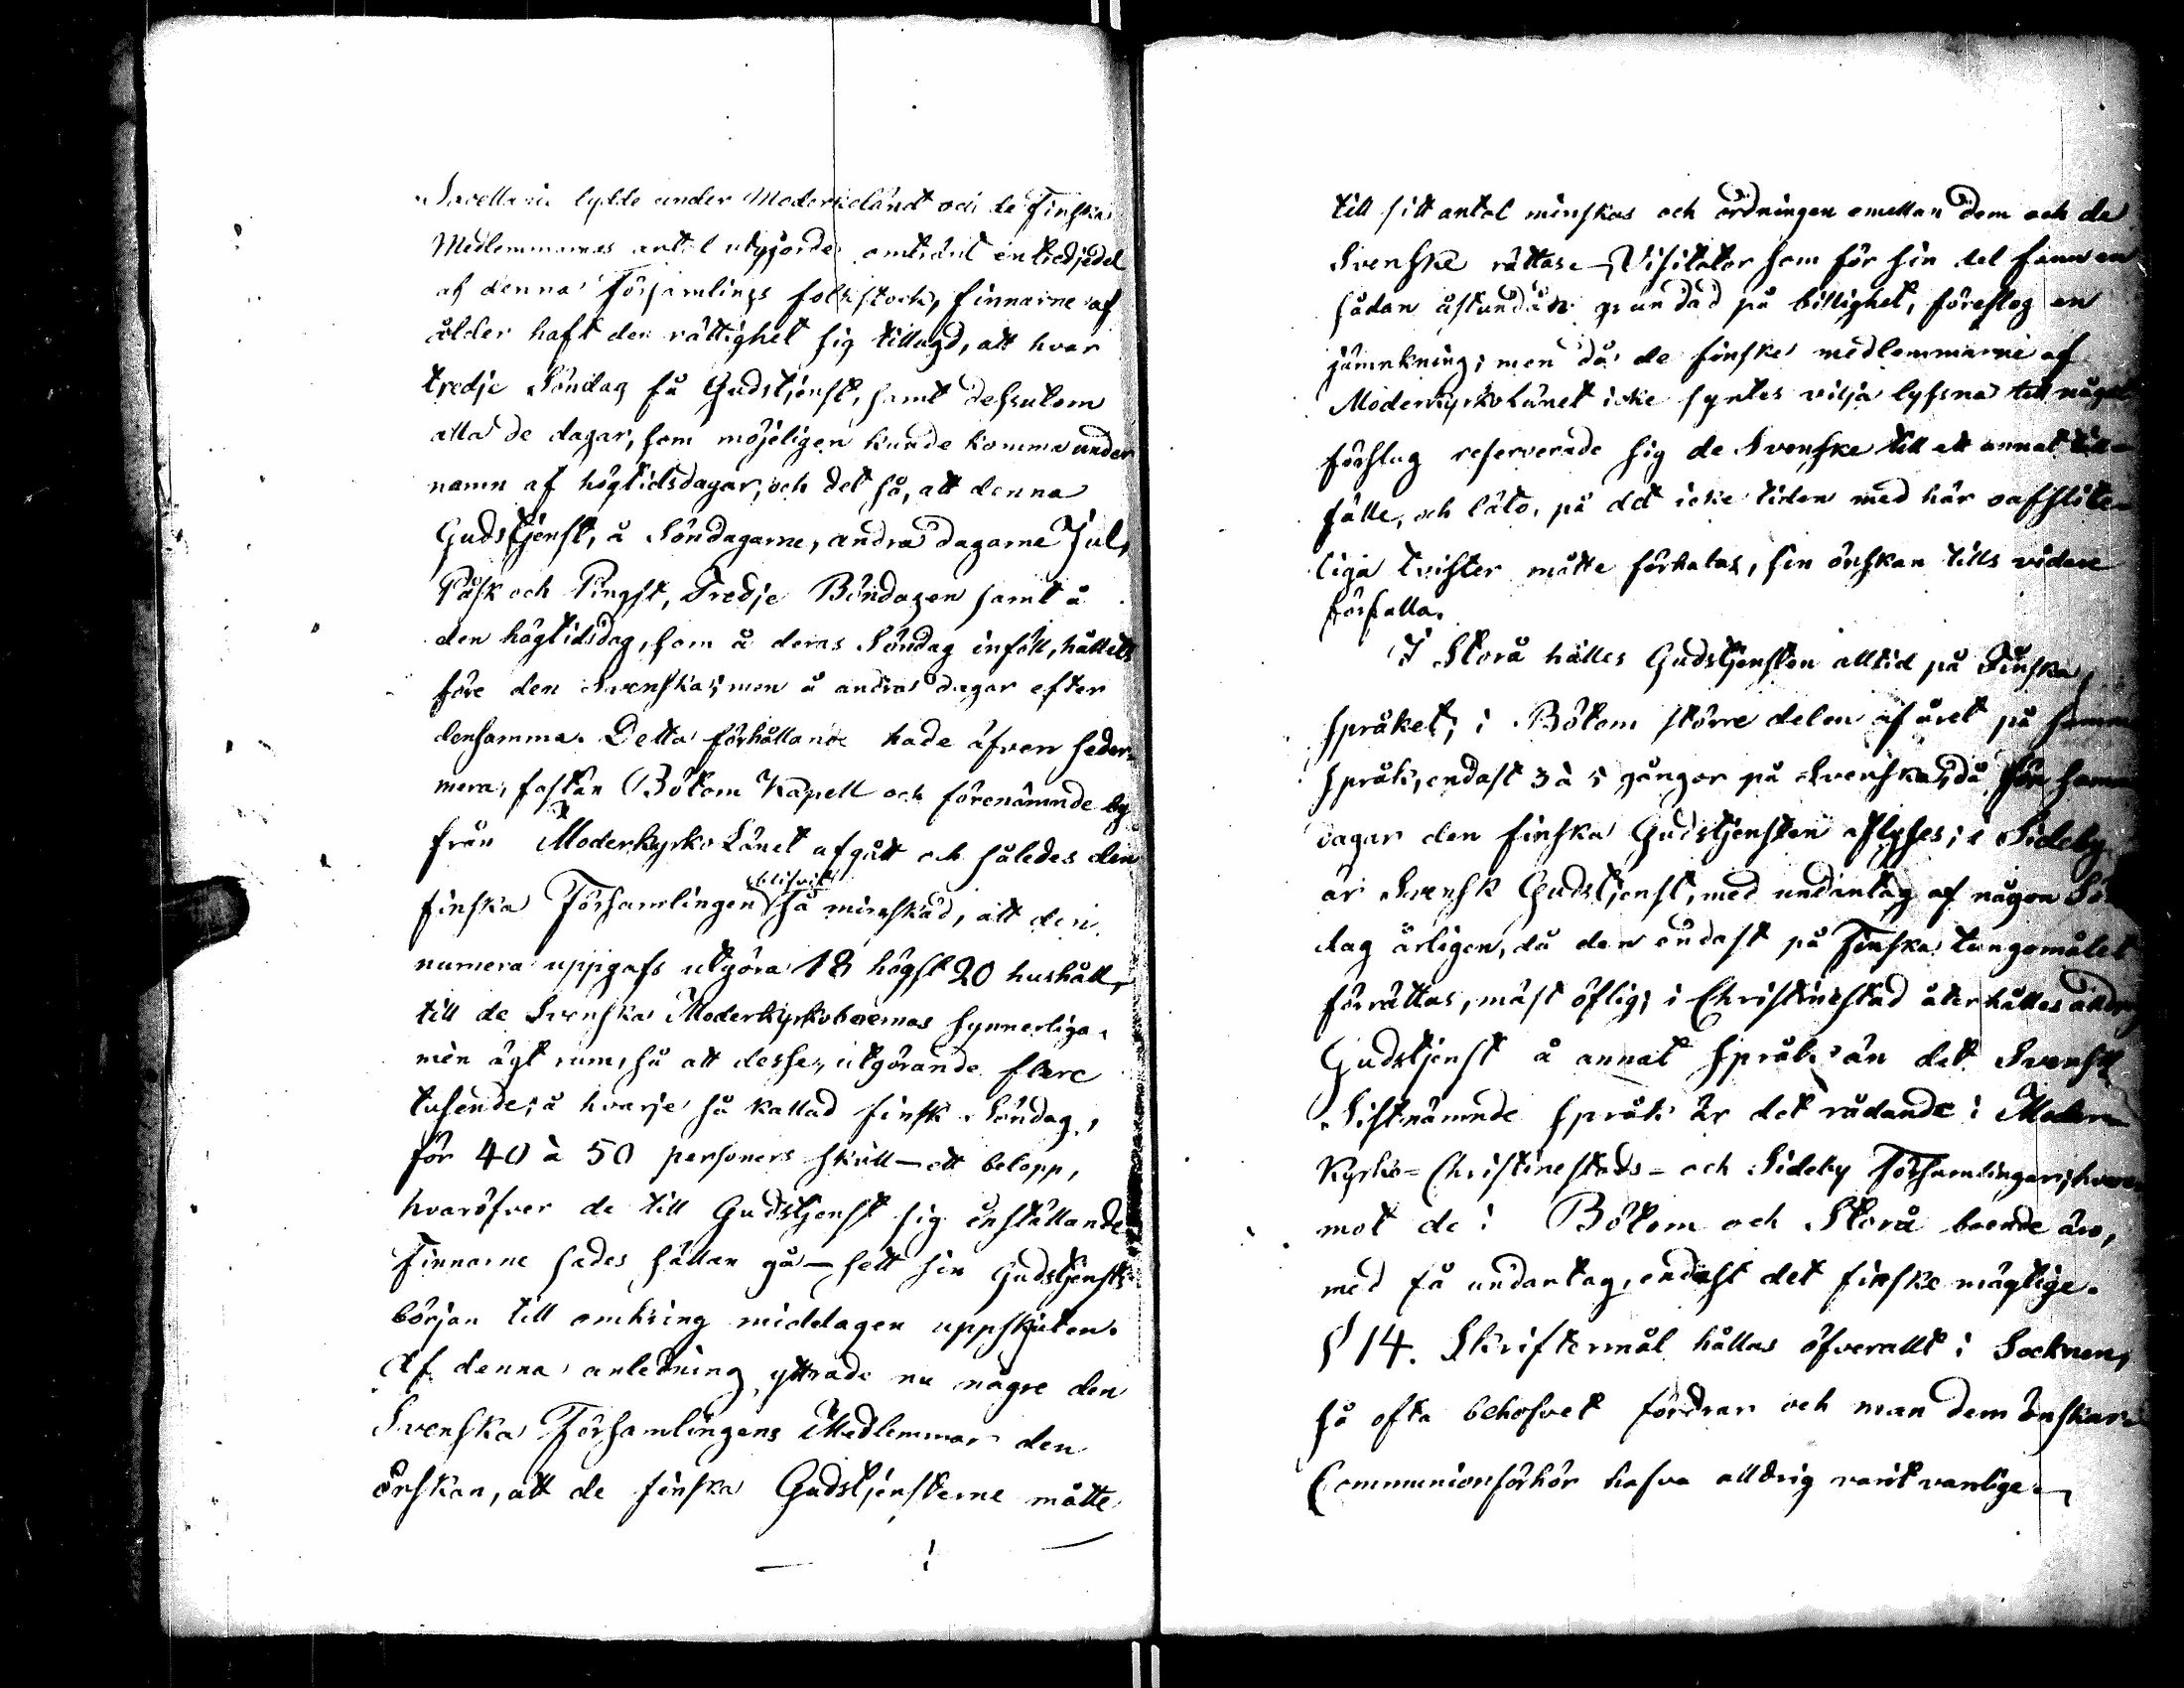 lydde under Moderkelandt och de Finska
Medlemmarnes antal utgjorde omtrönt en tredjedel
af denna Församlings folkstock, finnarne af
ålder haft den rättighet sig tillagd, att hvar
tredje Söndag få Gudstjenst, samt dessutom
alla de dagar, som möjeligen kunde komma under
namn af högtidsdagar, och det så, att denna
Gudstjenst, å Söndagarne, andra dagarne Jul,
Påsk och Pingst, Tredje Böndagen samt å
den högtidsdag, som å deras Söndag inföll, hållits
före den Svenska; men å andra dagar efter
densamma. Detta förhållande hade äfven seder-
mera, fastän Bötom Kapell och förenämnde by
från Moderkyrko Länet afgått och således den
finska Församlingen blifvit så minskad, att den
numera uppgafs utgöra 18 högst 20 hushåll,
till de Svenska Moderkyrkoboernas synnerliga
mèn ägt rum, så att desse, utgörande flere
tusende, å hvarje så kallad finsk Söndag,
för 40 à 50 personers skull — ett belopp,
hvaröfver de till Gudstjenst sig inställande
Finnarne sades sällan gå — sett sin Gudstjensts
början till omkring middagen uppskjuten.
Af denna anledning yttrade nu någre den
Svenska Församlingens Medlemmar den
önskan, att de finska Gudstjensterne måtte
till sitt antal minskas och ordningen emellan dem och de
Svenske rättas. — Visitator som för sin del fann en
sådan åstundan grundad på billighet, föreslog en
jämnkning; men då de finske medlemmarne af
Moderkyrkolänet icke syntes vilja lyssna till något
förslag reserverade sig de Svenske till ett annat till-
fälle, och läto, på det icke tiden med här oafslite-
liga tvister måtte förhalas, sin önskan tills vidare
förfalla.
I Storå hålles Gudstjensten alltid på Finska
språket; i Bötom större delen af året på samma
språk, endast 3 à 5 gångor på Svenska, då före samma
dagar den finska Gudstjensten aflyses; i Sideby
är Svensk Gudstjenst, med undantag af någon Sön-
dag årligen, då den endast på Finska tungomålet
förrättas, mäst öflig; i Christinestad åter hålles aldrig
Gudstjenst å annat språk än det Svenska
Sistnämnde språk är det rådande i Moder-
Kyrko- Christinestads- och Sideby Församlingar; hvare-
mot de i Bötom och Storå boende äro,
med få undantag, endast det finske mägtige.
§ 14. Skriftermål hållas öfverallt i Socknen,
så ofta behofvet fordrar och man dem önskar.
Communionförhör hafva alldrig varit vanlige. —